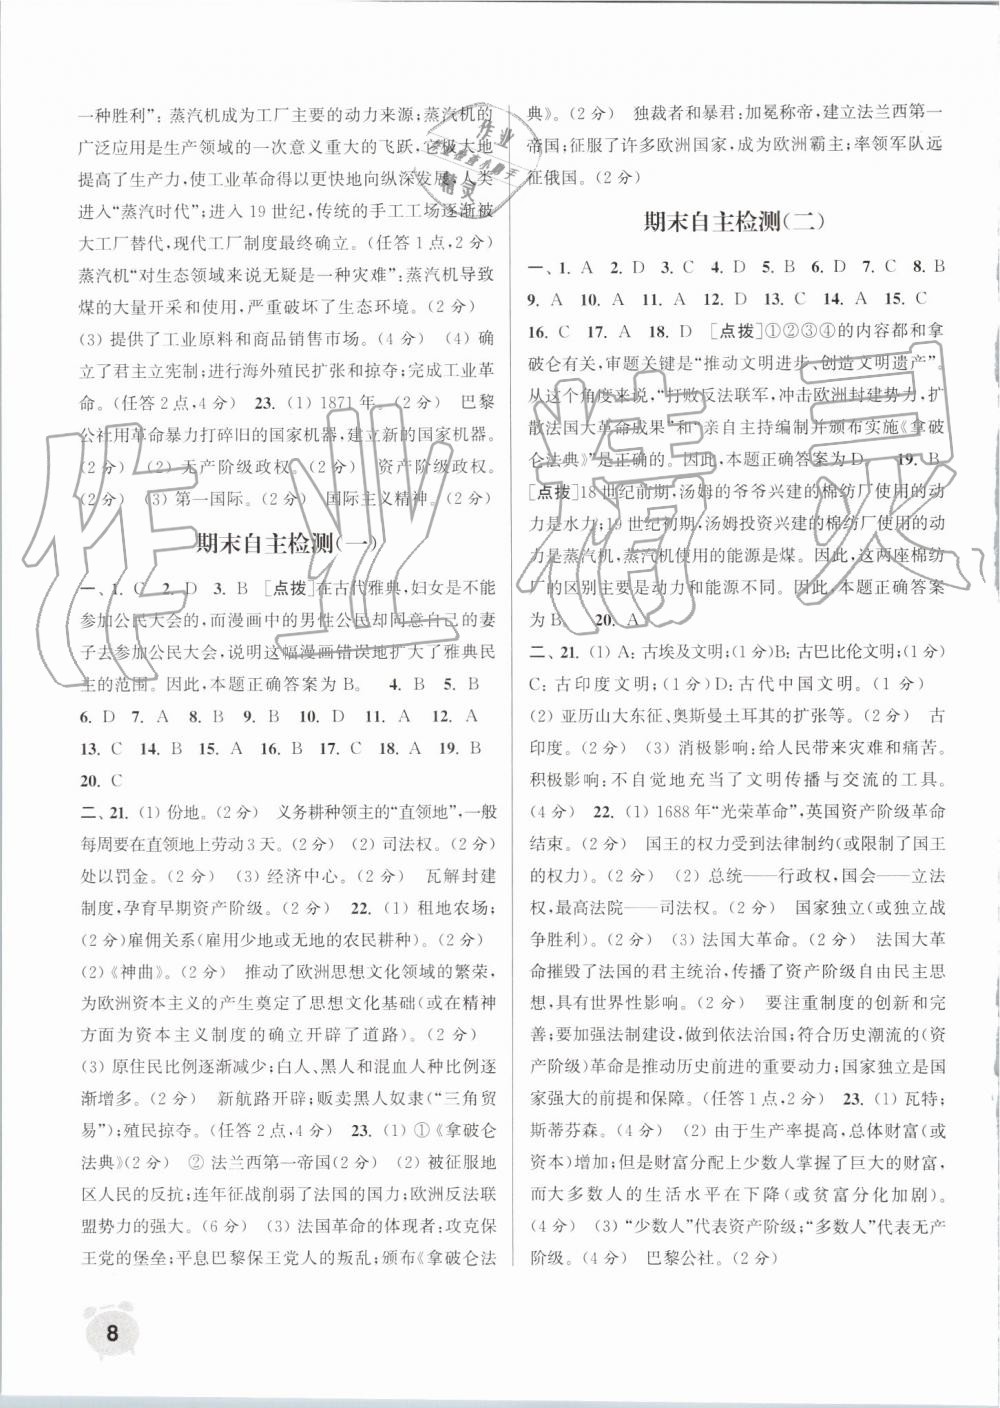 一种胜利”：蒸汽机成为工厂主要的动力来源；蒸汽机的
广泛应用是生产领域的一次意义重大的飞跃，它极大地
提高了生产力，使工业革命得以更快地向纵深发展；人类
进入“蒸汽时代”；进入 19 世纪，传统的手工工场逐渐被
大工厂替代，现代工厂制度最终确立。（任答 1 点，2 分）
蒸汽机“对生态领域来说无疑是一种灾难”：蒸汽机导致
煤的大量开采和使用，严重破坏了生态环境。（2 分）
（3）提供了工业原料和商品销售市场。（4 分） （4）确
立了君主立宪制；进行海外殖民扩张和掠夺；完成工业革
命。（任答 2 点，4 分） 23.（1）1871 年。（2 分） 巴黎
公社用革命暴力打碎旧的国家机器，建立新的国家机器。
（2 分） （2）无产阶级政权。 资产阶级政权。
（2 分） （3）第一国际。 国际主义精神。（2 分）
期末自主检测（一）
一、1. C 2. D 3. B ［点拨］在古代雅典，妇女是不能
参加公民大会的，而漫画中的男性公民却同意自己的妻
子去参加公民大会，说这幅漫画错误地扩大了雅典民
主的范围。因此，本题正确答案为 B。 4. B 5. B
6. D 7. A 8. B 9. B 10. D 11. A 12. A
13. C 14. B 15. A 16. B 17. C 18. A 19. B
20. C
二、21.（1）份地。（2 分） 义务耕种领主的“直领地”，一般
每周要在直领地上劳动 3 天。（2 分） （2）司法权。（2 分）
处以罚金。（2 分） （3）经济中心。（2 分） 瓦解封建
制度，孕育早期资产阶级。（2 分） 22.（1）租地农场；
（2 分）雇佣关系（雇用少地或无地的农民耕种）。（2 分）
（2）《神曲》。（2 分） 推动了欧洲思想文化领域的繁荣，
为欧洲资本主义的产生奠定了思想文化基础（或在精神
方面为资本主义制度的确立开辟了道路）。（2 分）
（3）原住民比例逐渐减少；白人、黑人和混血人种比例逐
渐增多。（2 分） 新航路开辟；贩卖黑人奴隶（“三角贸
易”）；殖民掠夺。（任答 2 点，4 分） 23.（1）①《拿破仑
法典》（2 分） ② 法兰西第一帝国（2 分） （2）被征服地
区人民的反抗；连年征战削弱了法国的国力；欧洲反法联
盟势力的强大。（6 分） （3）法国革命的体现者：攻克保
王党的堡垒；平息巴黎保王党人的叛乱；颁布《拿破仑法
典》。（2 分） 独裁者和暴君：加冕称帝，建立法兰西第一
帝国；征服了许多欧洲国家，成为欧洲霸主；率领军队远
征俄国。（2 分）
期末自主检测（二）
一、1. A 2. D 3. C 4. D 5. B 6. D 7. C 8. B
9. A 10. A 11. A 12. D 13. C 14. A 15. C
16. C 17. A 18. D ［点拨］①②③④的内容都和拿
破仑有关，审题关键是“推动文明进步、创造文明遗产”。
从这个角度来说，“打败反法联军，冲击欧洲封建势力，扩
散法国大革命成果”和“亲自主持编制并颁布实施《拿破
仑法典》”是正确的。因此，本题正确答案为 D。 19. B
［点拨］18 世纪前期，汤姆的爷爷兴建的棉纺厂使用的动
力是水力；19 世纪初期，汤姆投资兴建的棉纺厂使用的动
力是蒸汽机，蒸汽机使用的能源是煤。因此，这两座棉纺
厂的区别主要是动力和能源不同。因此，本题正确答案
为 B。 20. A
二、21.（1）A：古埃及文明；（1 分）B：古巴比伦文明；（1 分）
C：古印度文明；（1 分）D：古代中国文明。（1 分）
（2）亚历山大东征、奥斯曼土耳其的扩张等。（2 分） 古
印度。（2 分） （3）消极影响：给人民带来灾难和痛苦。
积极影响：不自觉地充当了文明传播与交流的工具。
（4 分） 22.（1）1688 年“光荣革命”，英国资产阶级革命
结束。（2 分） 国王的权力受到法律制约（或限制了国王
的权力）。（2 分） （2）总统——行政权，国会——立法
权，最高法院——司法权。（2 分） 国家独立（或独立战
争胜利）。（2 分） （3）法国大革命。（2 分） 法国大革
命摧毁了法国的君主统治，传播了资产阶级自由民主思
想，具有世界性影响。（2 分） 要注重制度的创新和完
善；要加强法制建设，做到依法治国；符合历史潮流的（资
产阶级）革命是推动历史前进的重要动力；国家独立是国
家强大的前提和保障。（任答 1 点，2 分） 23.（1）瓦特；
斯蒂芬森。（4 分） （2）由于生产率提高，总体财富（或
资本）增加；但是财富分配上少数人掌握了巨大的财富，
而大多数人的生活水平在下降（或贫富分化加剧）。
（4 分） （3）“少数人”代表资产阶级；“多数人”代表无产
阶级。（4 分） 巴黎公社。（2 分）
8
作业精灵